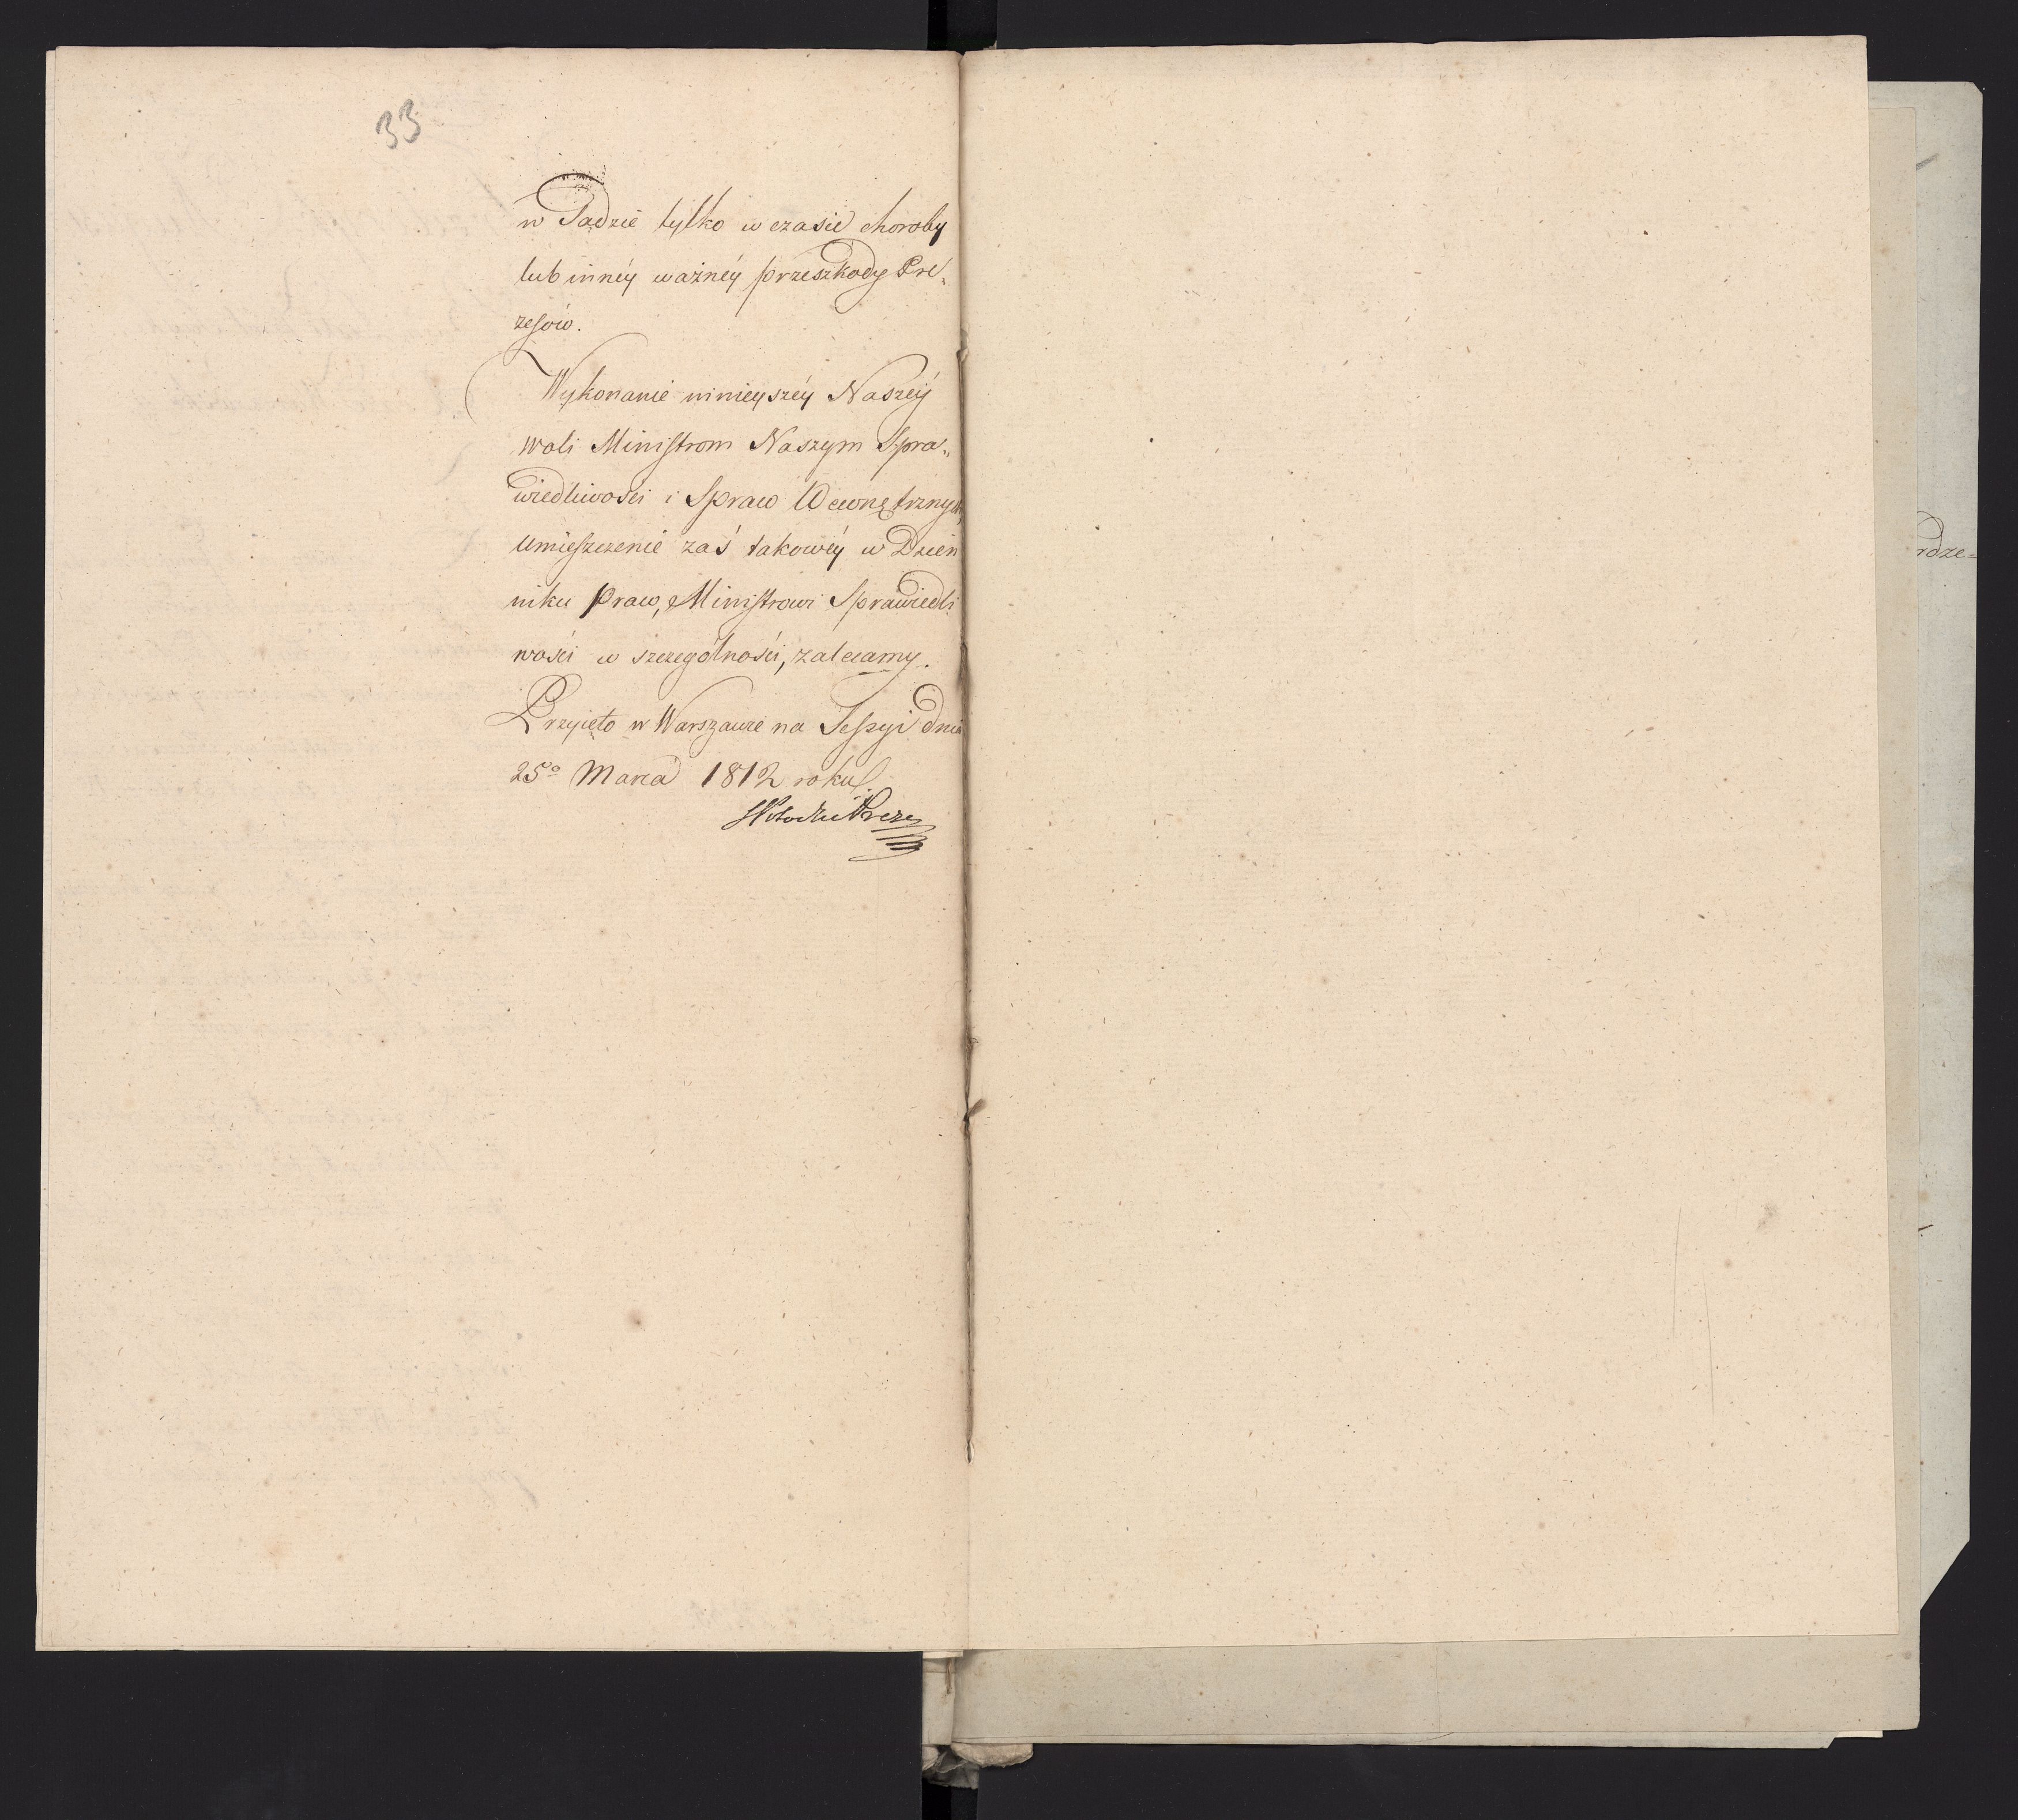 33
w Sądzie tylko w czasie choroby
lub innéy ważnéy przeszkody Pre„
zesów.
Wykonanie ninieyszéy Naszéy
woli Ministrom Naszym Spra„
wiedliwości i Spraw Wewnętrznych,
umieszczenie zaś takowéy w Dzien
niku Praw, Ministrowi Sprawiedli
wości w szczególności, zalecamy.
Przyięto w Warszawie na Sessyi dnia
25º Marca 1812 roku.
SPotocki Prezes
rdze=